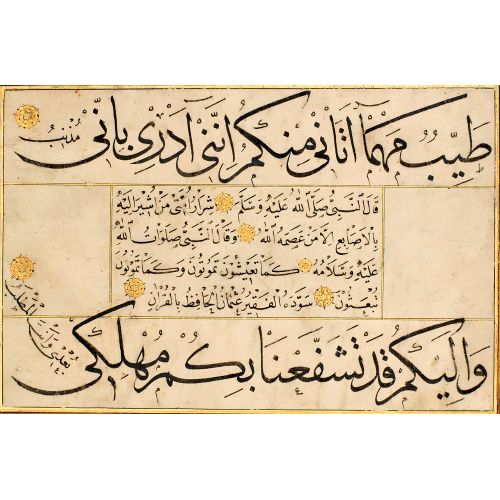 طَيِّبٌ مَهْمَا اَتَانِى مِنْكُمُ اِنَّنِى اَدْرِى بِاَنِّى مُذْنِبٌ
قَالَ النَّبِىُّ صَلَّى اللّٰهُ عَلَيْهِ وَسَلَّمَ شِرَارُ اُمَّتِى مَنْ اُشِيرَ اِلَيْهِ
بِالْاَصَابِعِ اِلَّا مَنْ عَصَمَهُ اللّٰهُ وَقَالَ النَّبِىُّ صَلَوَاتُ اللّٰهِ
عَلَيْهِ وَسَلَامُهُ كَمَا تَعِيشُونَ تَمُوتُونَ وَكَمَا تَمُوتُونَ
تُبْعَثُونَ سَوَّدَهُ الْفَقِيرُ عُثْمَانُ الْحَافِظُ بِالْقُرْاٰنِ
وَاِلَيْكُمْ قَدْ تَشَفَّعْنَا بِكُمْ مُهْلَكِى